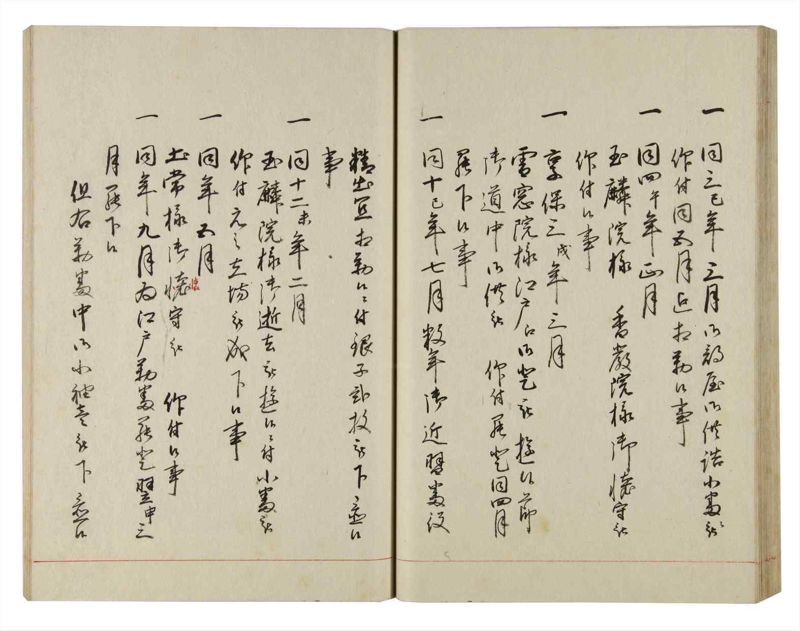 一 同三巳年三月御部屋御供詰小姓被
仰付同五月迄相勤候事
一 同四午年正月
玉麟院様 香嚴院様御懐守被
仰付候事
一 享保三戌年三月
雪窓院様江戸江御登被遊候節
御道中御供被 仰付罷登同四月
罷下候事
一 同十巳年七月数年御近習番役
精出宜相勤候ニ付銀子弐枚被下置候
事
一 同十二未年二月
玉麟院様御逝去被遊候ニ付小姓被
仰付元之立場被成下候事
一 同年五月
土常様御懐守被 仰付候事
一 同年九月為江戸勤番罷登翌申三
月罷下候
但右勤番中御小袖壱被下置候